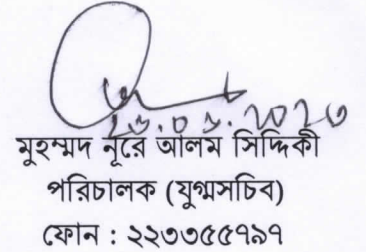 মুহম্মদ নূরে আলম সিদ্দিকী
পরিচালক (যুগ্মসচিব)
ফোন : ২২৩৩৫৫৭৯৭